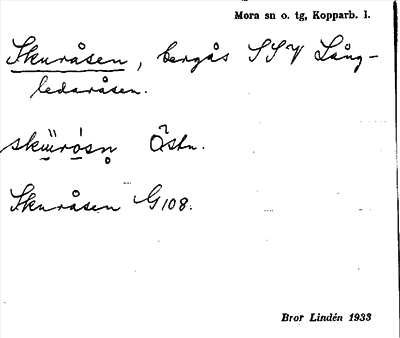 Mora sn o. tg, Kopparb. l.
Skuråsen, bergås SSV Lång-
ledaråsen.
Östn.
Skuråsen G108.
Bror Lindén 1933